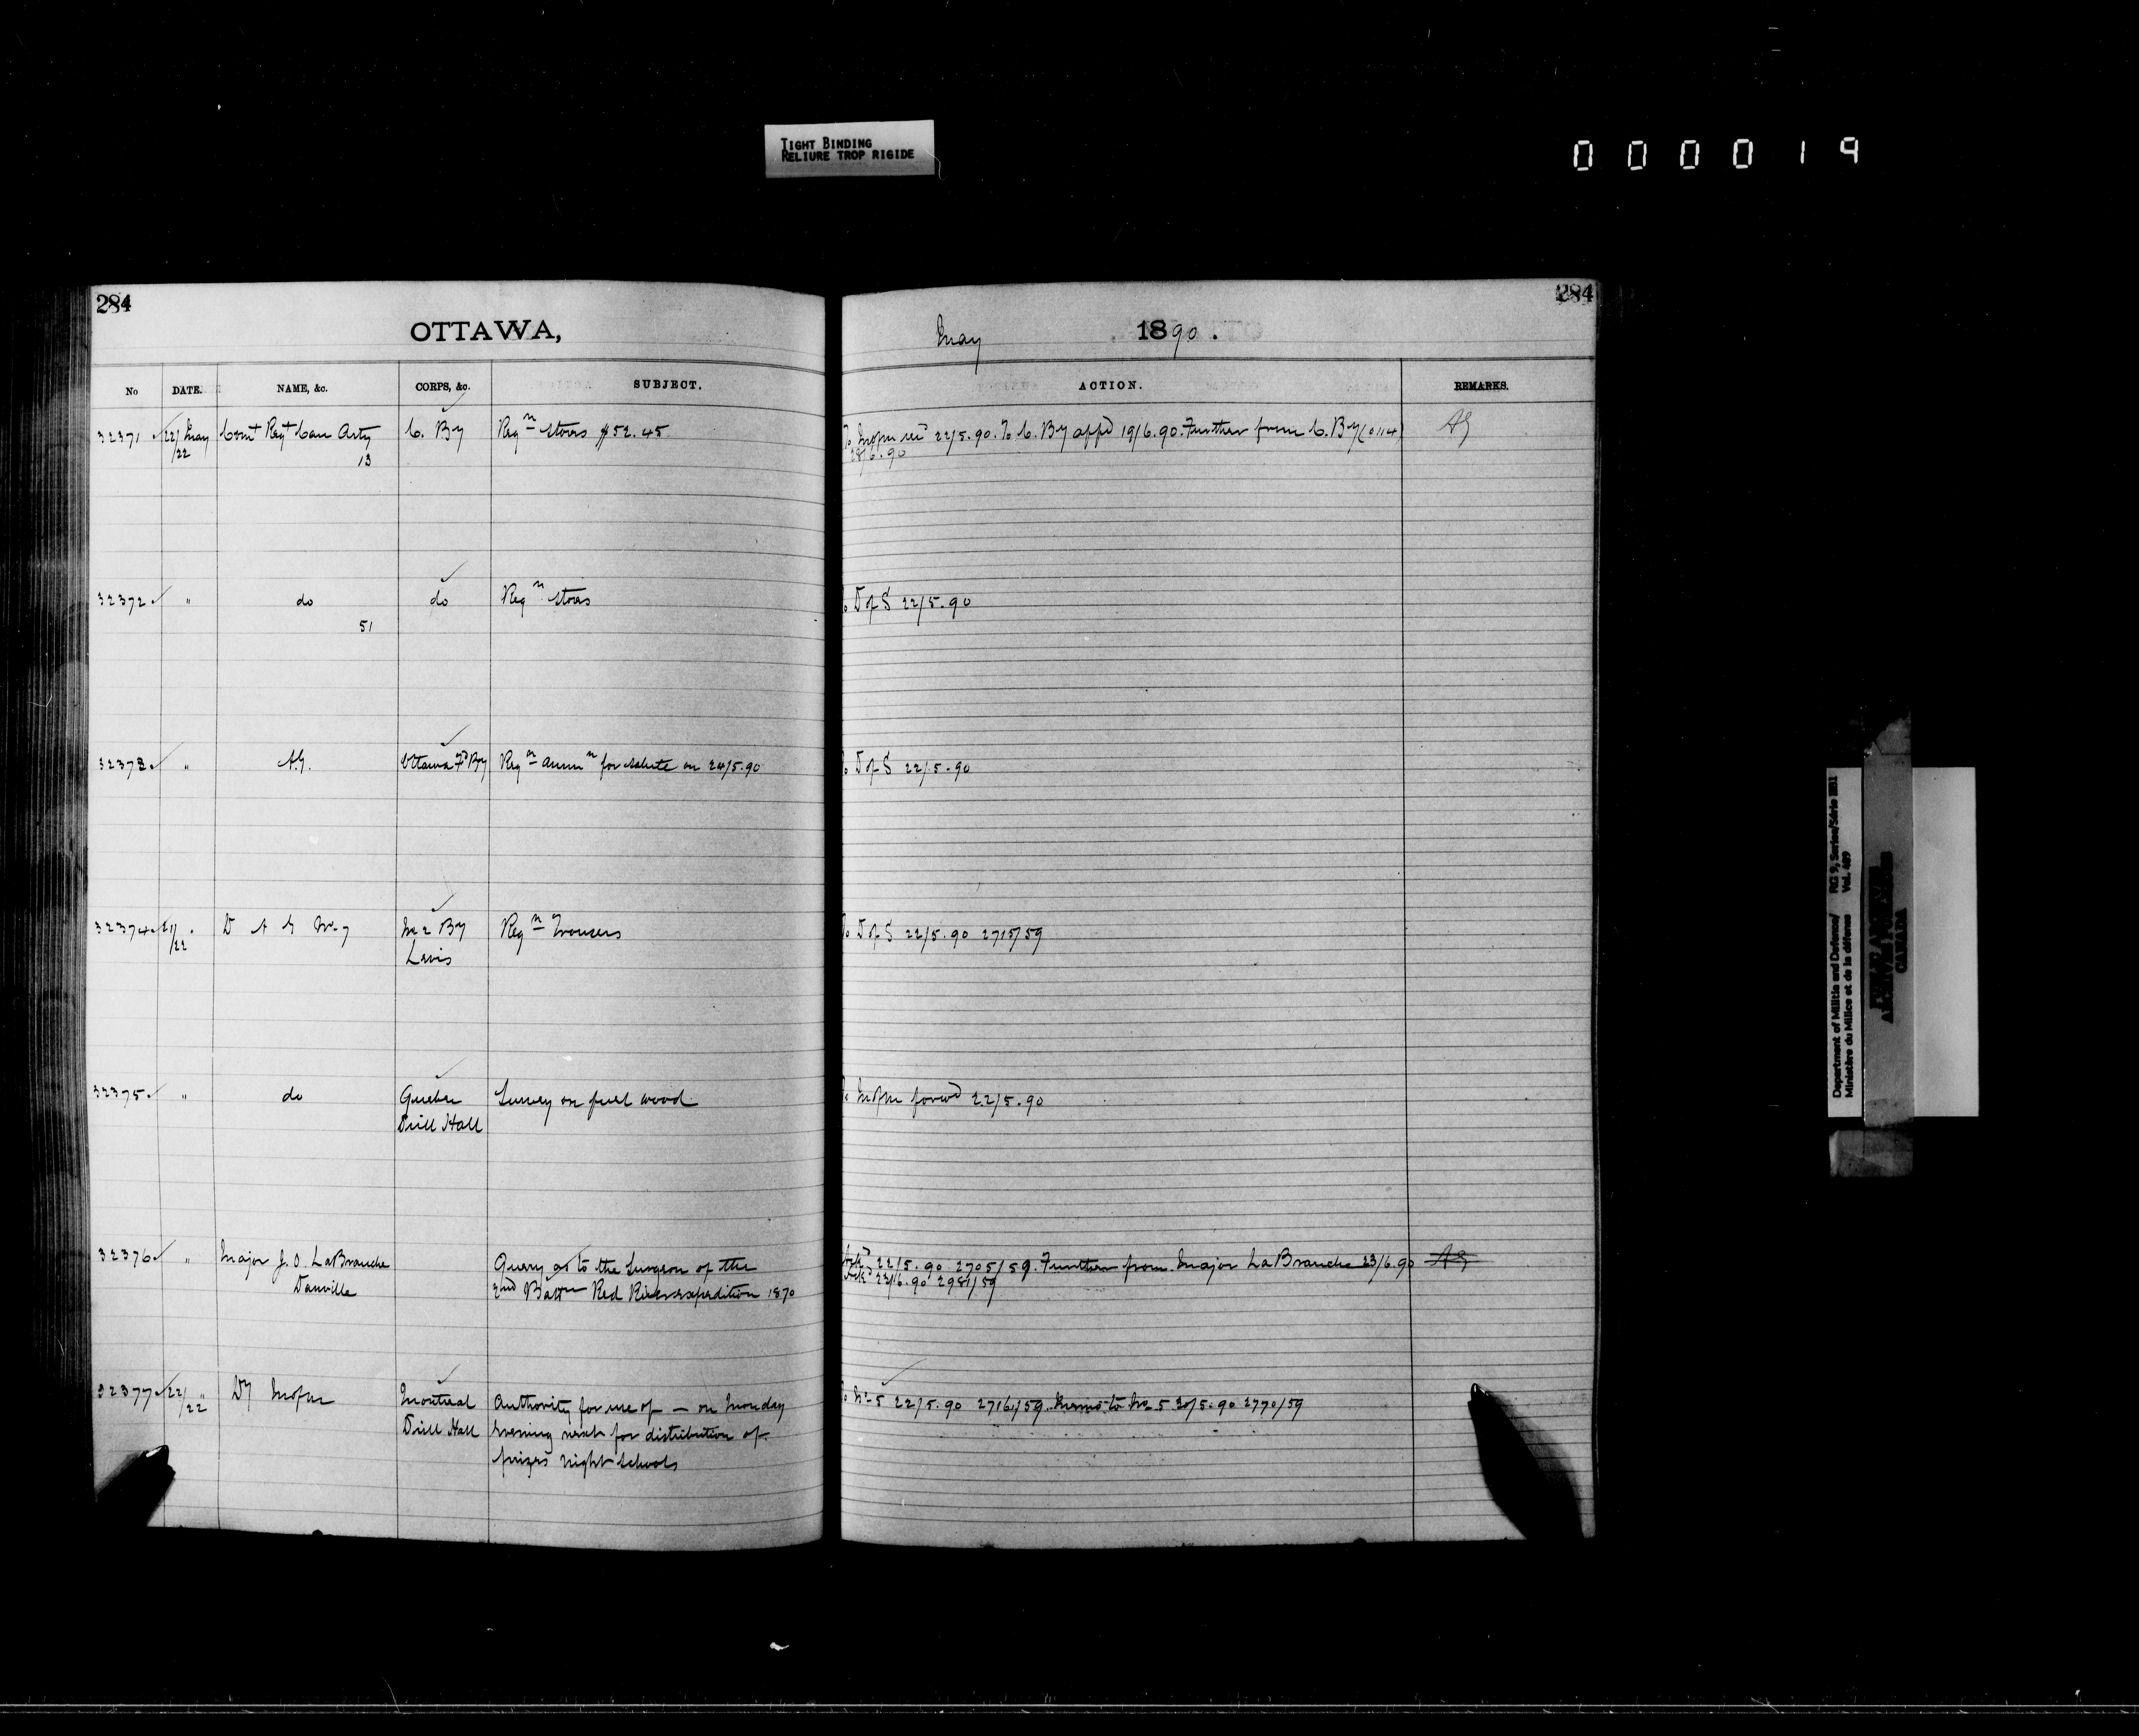 TIGHT BINDING
RELIURE TROP RIGIDE
000019
284
OTTAWA,
No DATE. NAME, &c. CORPS, &c. SUBJECT.
32371 22/ May Comt Regt Can Arty C. By Reqn Stores $52.45
/22 13
32372 " do do Reqn Stores
51
32373 " A.G. Ottawa Fd By Reqn Ammn for salute on 24/5.90
32374 21/ " D A G No 7 No 2 By Reqn Trousers
/22 Levis
32375 " do Quebec Survey on fuel wood
Drill Hall
32376 " Major J. O. LaBranche Query as to the Surgeon of the
Danville 2nd Battn Red River expedition 1870
32377 22/ " Montreal Authority for use of — on Monday
/22 Drill Hall evening next for distribution of
prizes night schools
284
May 1890.
ACTION. REMARKS.
22/5.90. To C. By appd 19/6.90. Further from C. By (0114) AG
28/6.90
To D of S 22/5.90
To D of S 22/5.90
To D of S 22/5.90 2715/59
forwd 22/5.90
Ackd 22/5.90 2705/59. Further from Major LaBranche 23/6.90 AG
Ackd 23/6.90 2981/59
To No 5 22/5.90 2716/59. Memo to No 5 30/5.90 2770/59
Department of Militia and Defence/
Ministère du Milice et de la défense
RG 9, Series/Série II B1
Vol. 469
PUBLIC ARCHIVES
ARCHIVES PUBLIQUES
CANADA